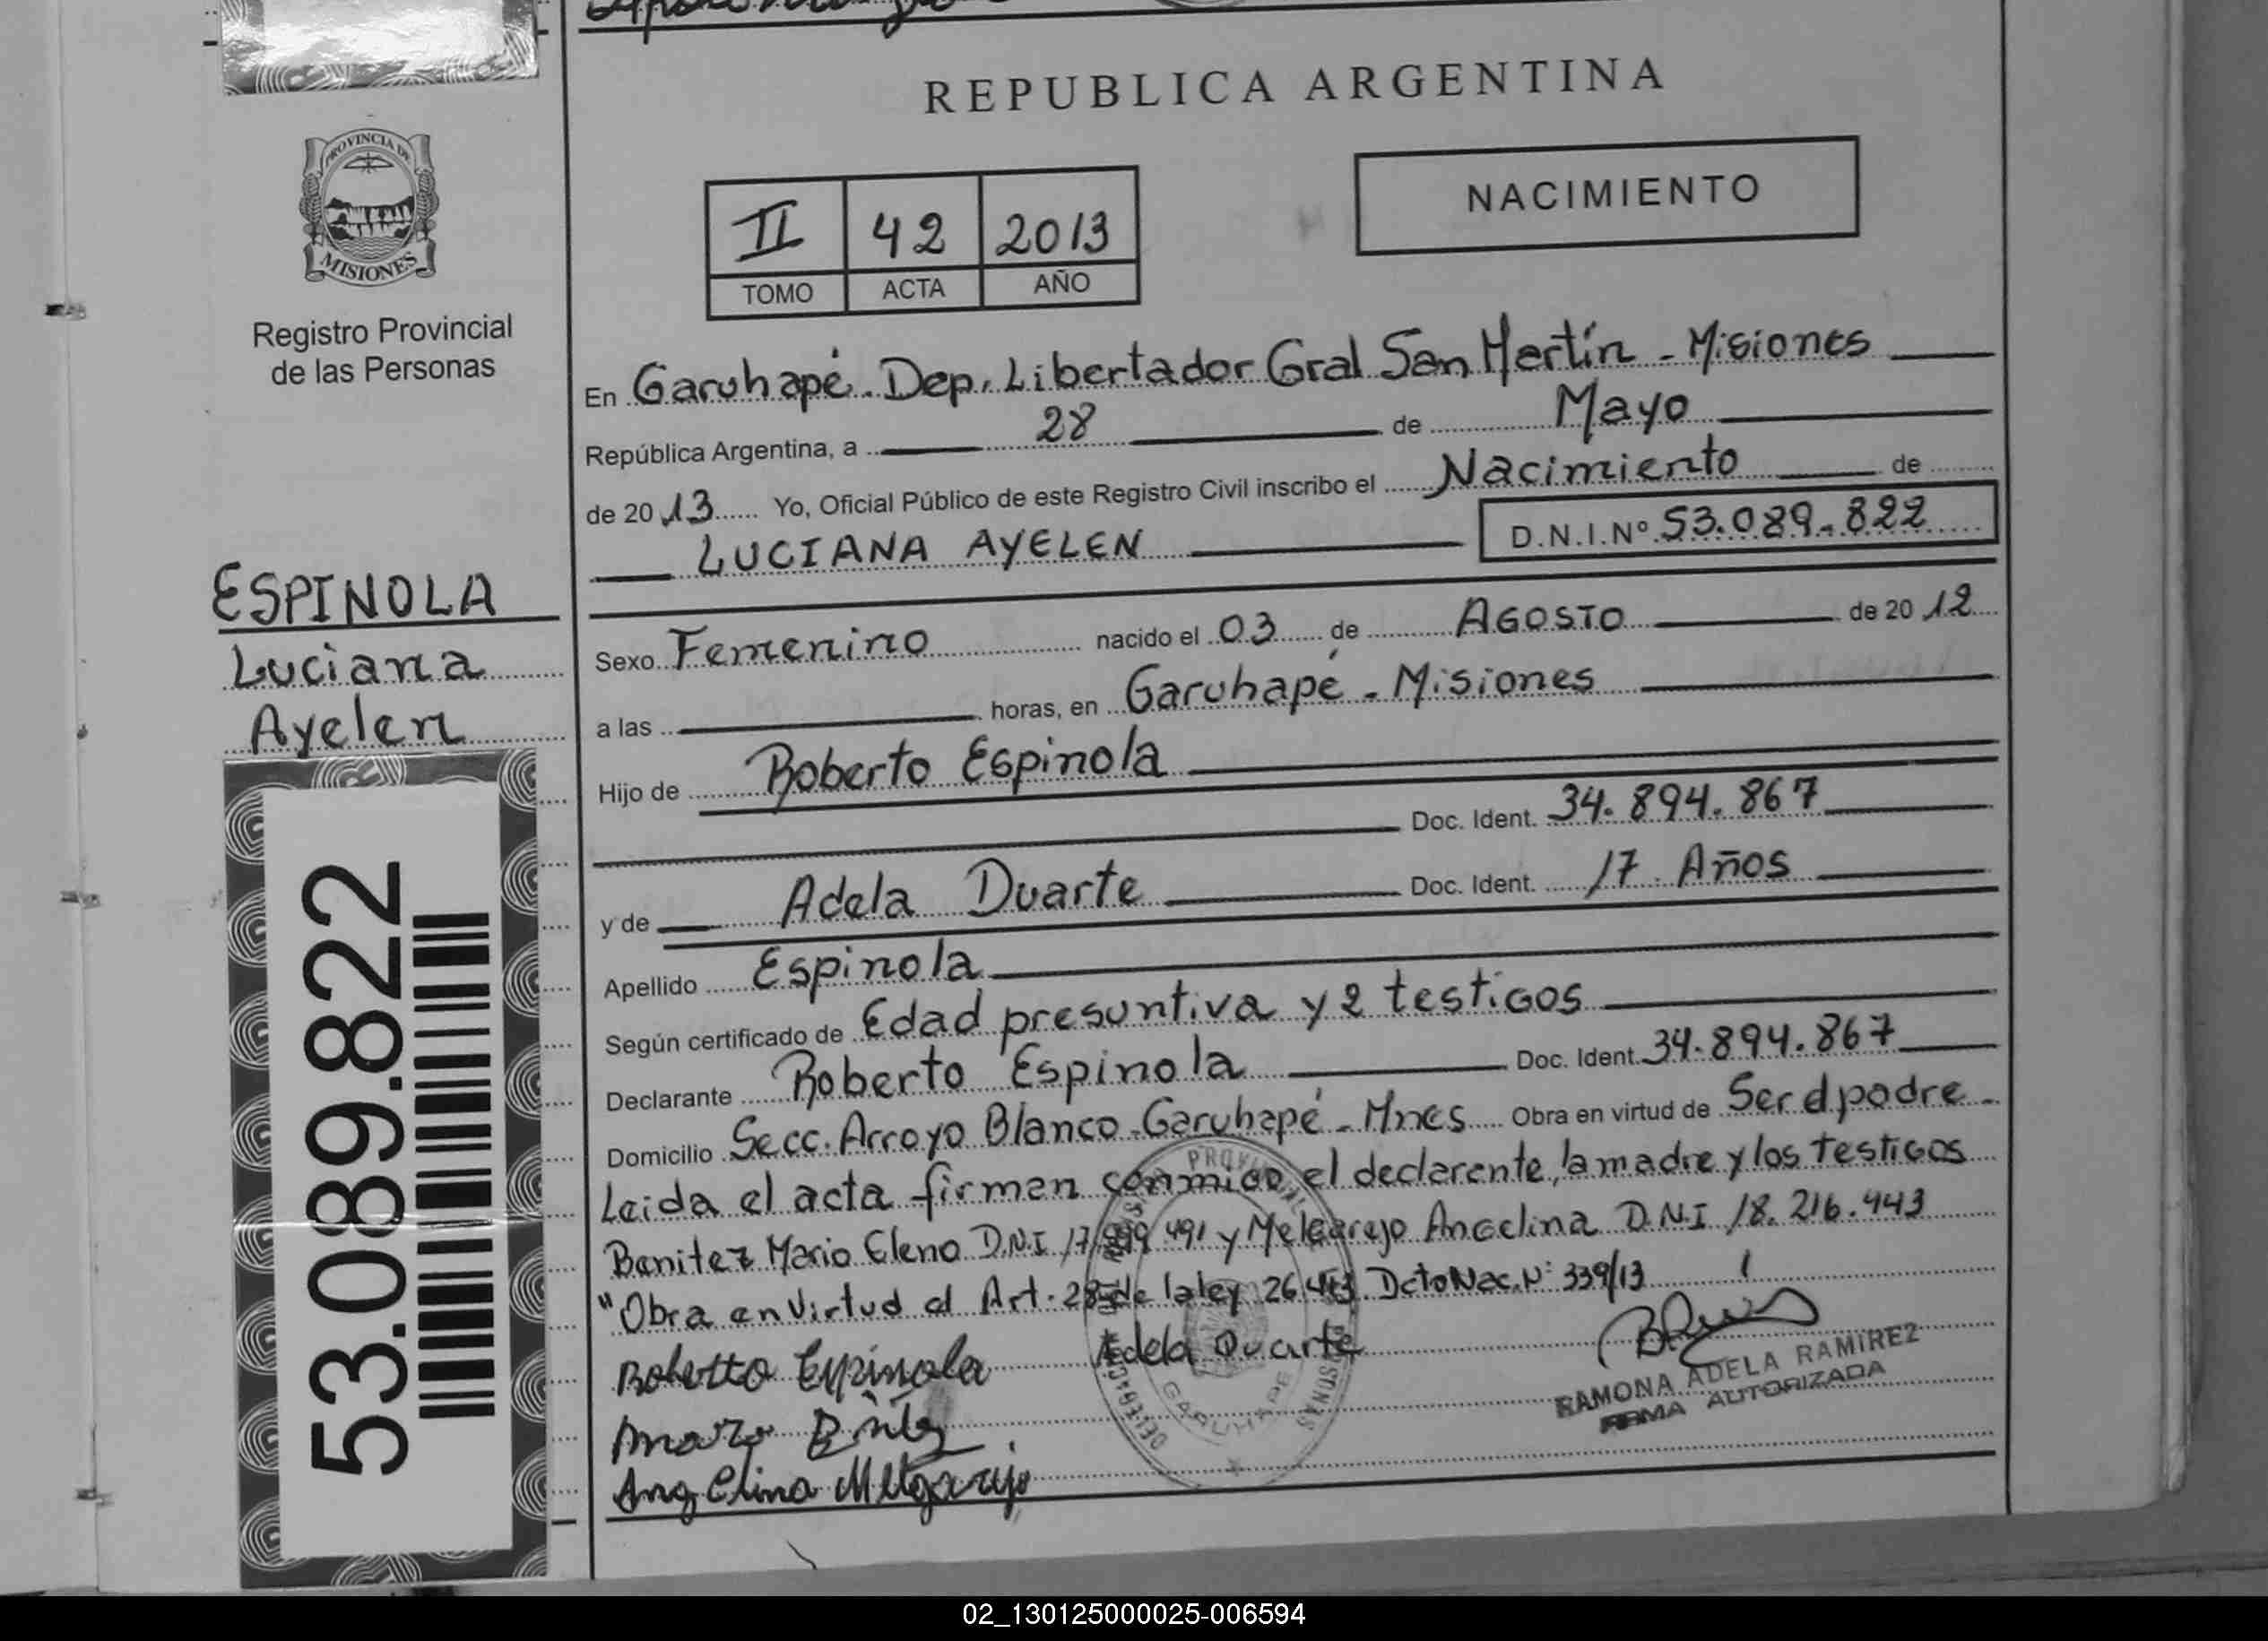 REPUBLICA ARGENTINA
PROVINCIA DE
MISIONES
Registro Provincial
de las Personas
NACIMIENTO
II 42 2013
TOMO ACTA AÑO
En Garuhapé. Dep. Libertador Gral San Martín - Misiones
República Argentina, a 28 de Mayo
de 2013 Yo, Oficial Público de este Registro Civil inscribo el Nacimiento de
LUCIANA AYELEN D.N.I.Nº 53.089.822
ESPINOLA
Luciana
Ayelen
53.089.822
Sexo Femenino nacido el 03 de AGOSTO de 2012
a las horas, en Garuhapé - Misiones
Hijo de Roberto Espinola
Doc. Ident. 34.894.867
y de Adela Duarte Doc. Ident. 17 Años
Apellido Espinola
Según certificado de Edad presuntiva y 2 testigos
Declarante Roberto Espinola Doc. Ident. 34.894.867
Domicilio Secc. Arroyo Blanco - Garuhapé - Mnes Obra en virtud de Ser el padre -
Leida el acta firman conmigo el declarante, la madre y los testigos
Benitez Mario Eleno D.N.I 17. 491 y Melgarejo Angelina D.N.I 18.216.443
"Obra en Virtud al Art. 28 de la ley 26.413 Dcto Nac. Nº 339/13
Roberto Espinola Adela Duarte
RAMONA ADELA RAMIREZ
FIRMA AUTORIZADA
Angelina Melgarejo
GARUHAPE
02_130125000025-006594